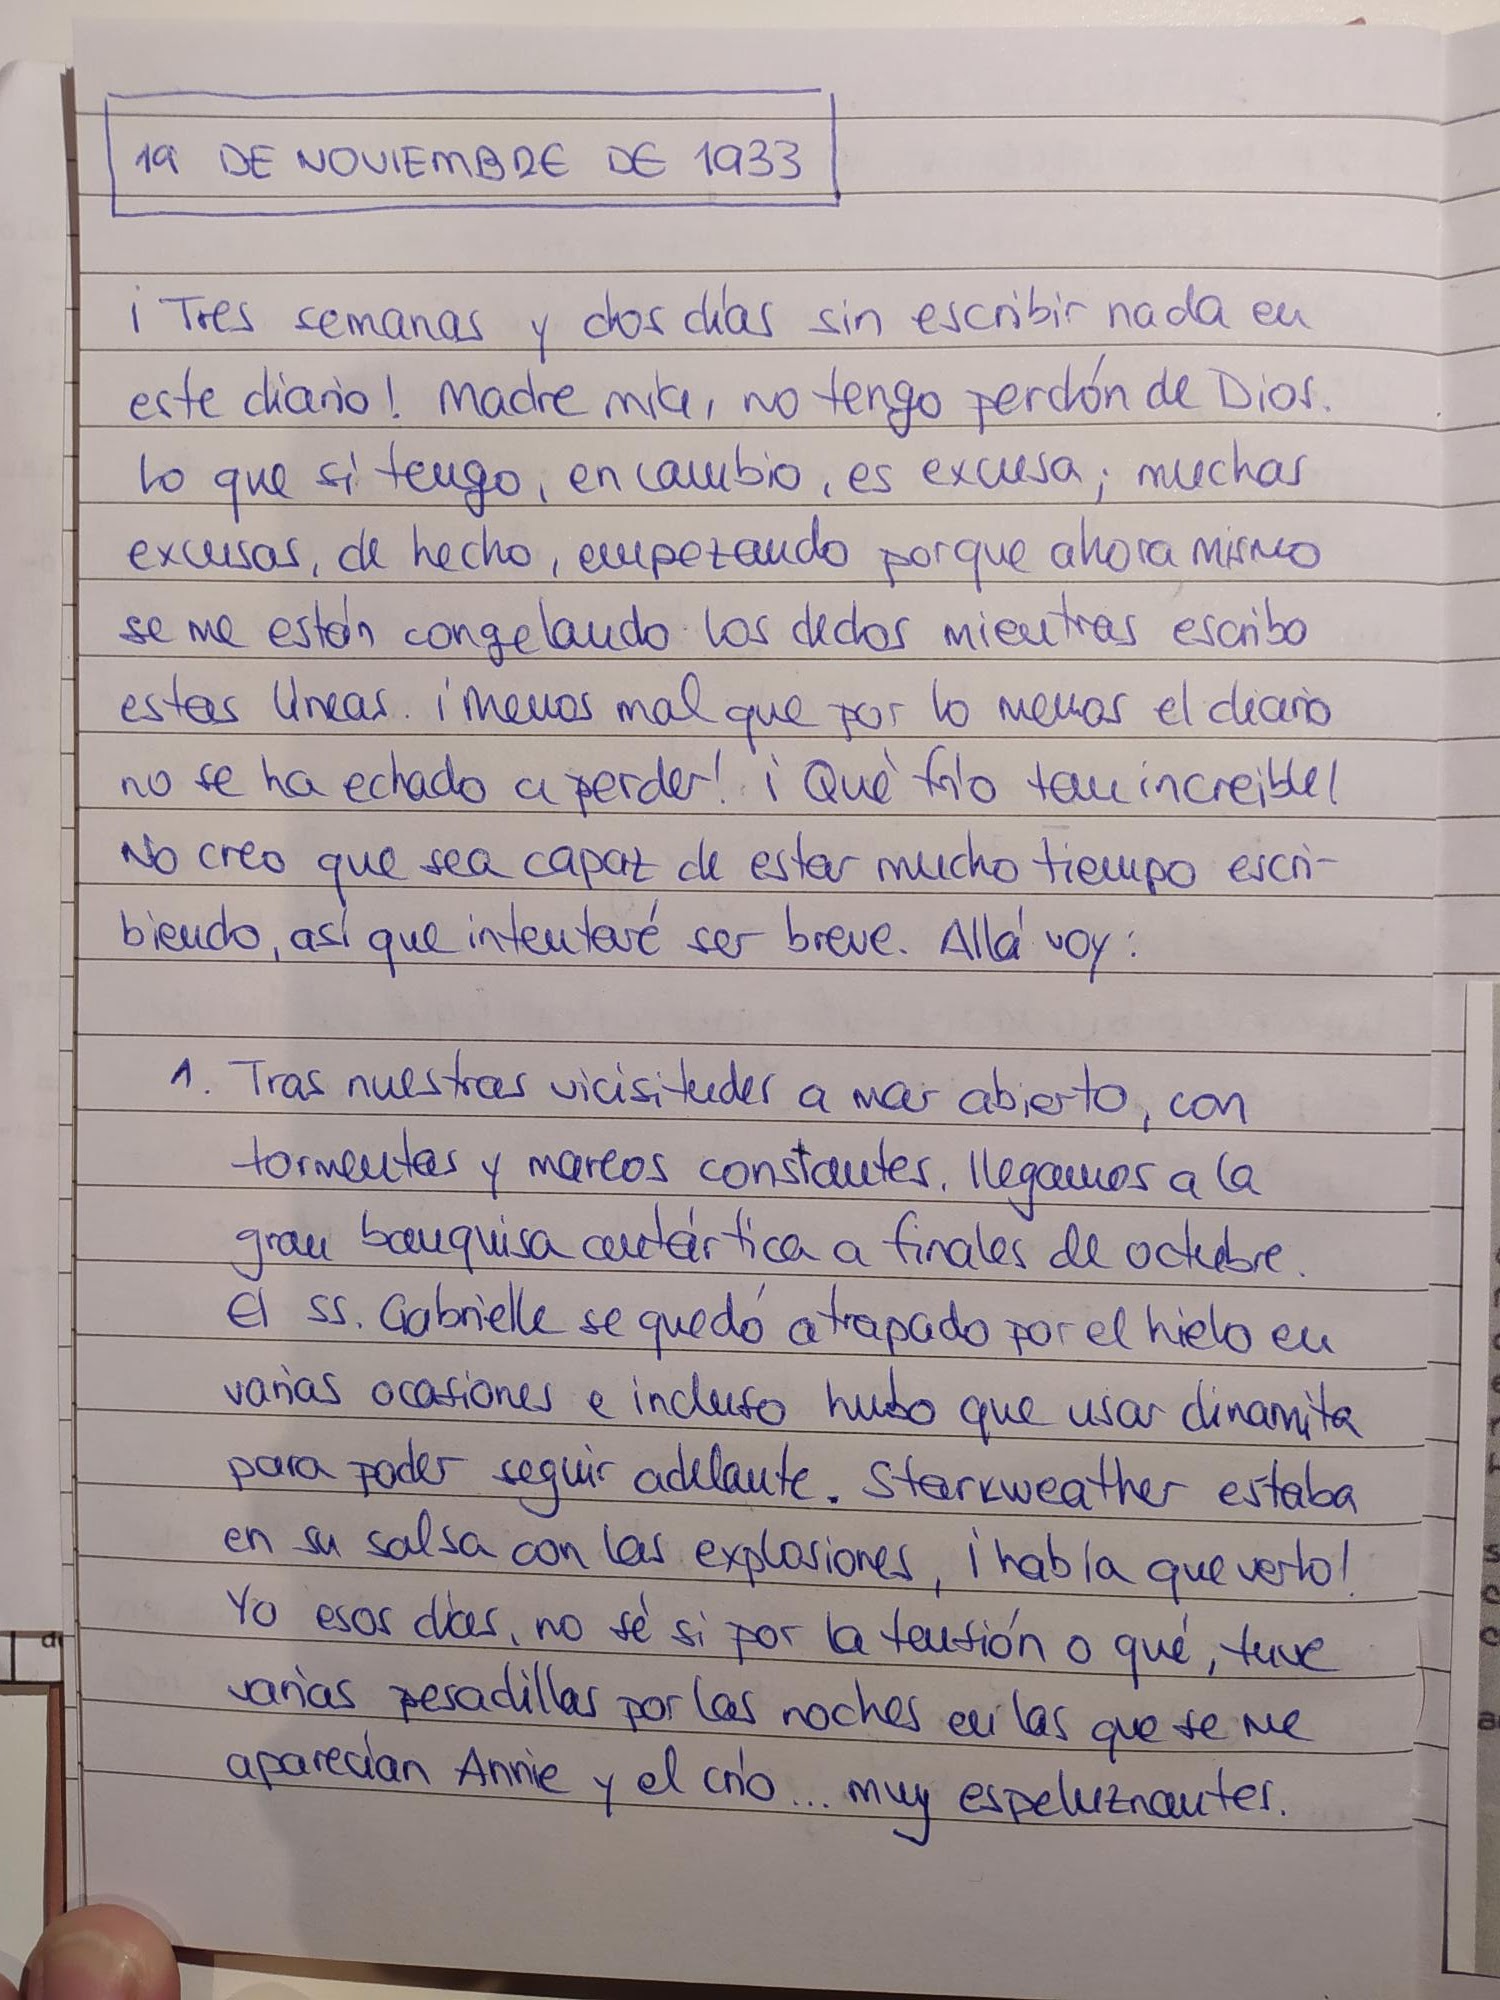 19 DE NOVIEMBRE DE 1933
¡Tres semanas y dos días sin escribir nada en
este diario! Madre mía, no tengo perdón de Dios.
Lo que sí tengo, en cambio, es excusa; muchas
excusas, de hecho, empezando porque ahora mismo
se me están congelando los dedos mientras escribo
estas líneas. ¡Menos mal que por lo menos el diario
no se ha echado a perder! ¡Qué frío tan increíble!
No creo que sea capaz de estar mucho tiempo escri-
biendo, así que intentaré ser breve. Allá voy:
1. Tras nuestras vicisitudes a mar abierto, con
tormentas y mareos constantes, llegamos a la
gran banquisa antártica a finales de octubre.
El SS. Gabrielle se quedó atrapado por el hielo en
varias ocasiones e incluso hubo que usar dinamita
para poder seguir adelante. Starkweather estaba
en su salsa con las explosiones, ¡había que verlo!
Yo esos días, no sé si por la tensión o qué, tuve
varias pesadillas por las noches en las que se me
aparecían Annie y el crío... muy espeluznantes.